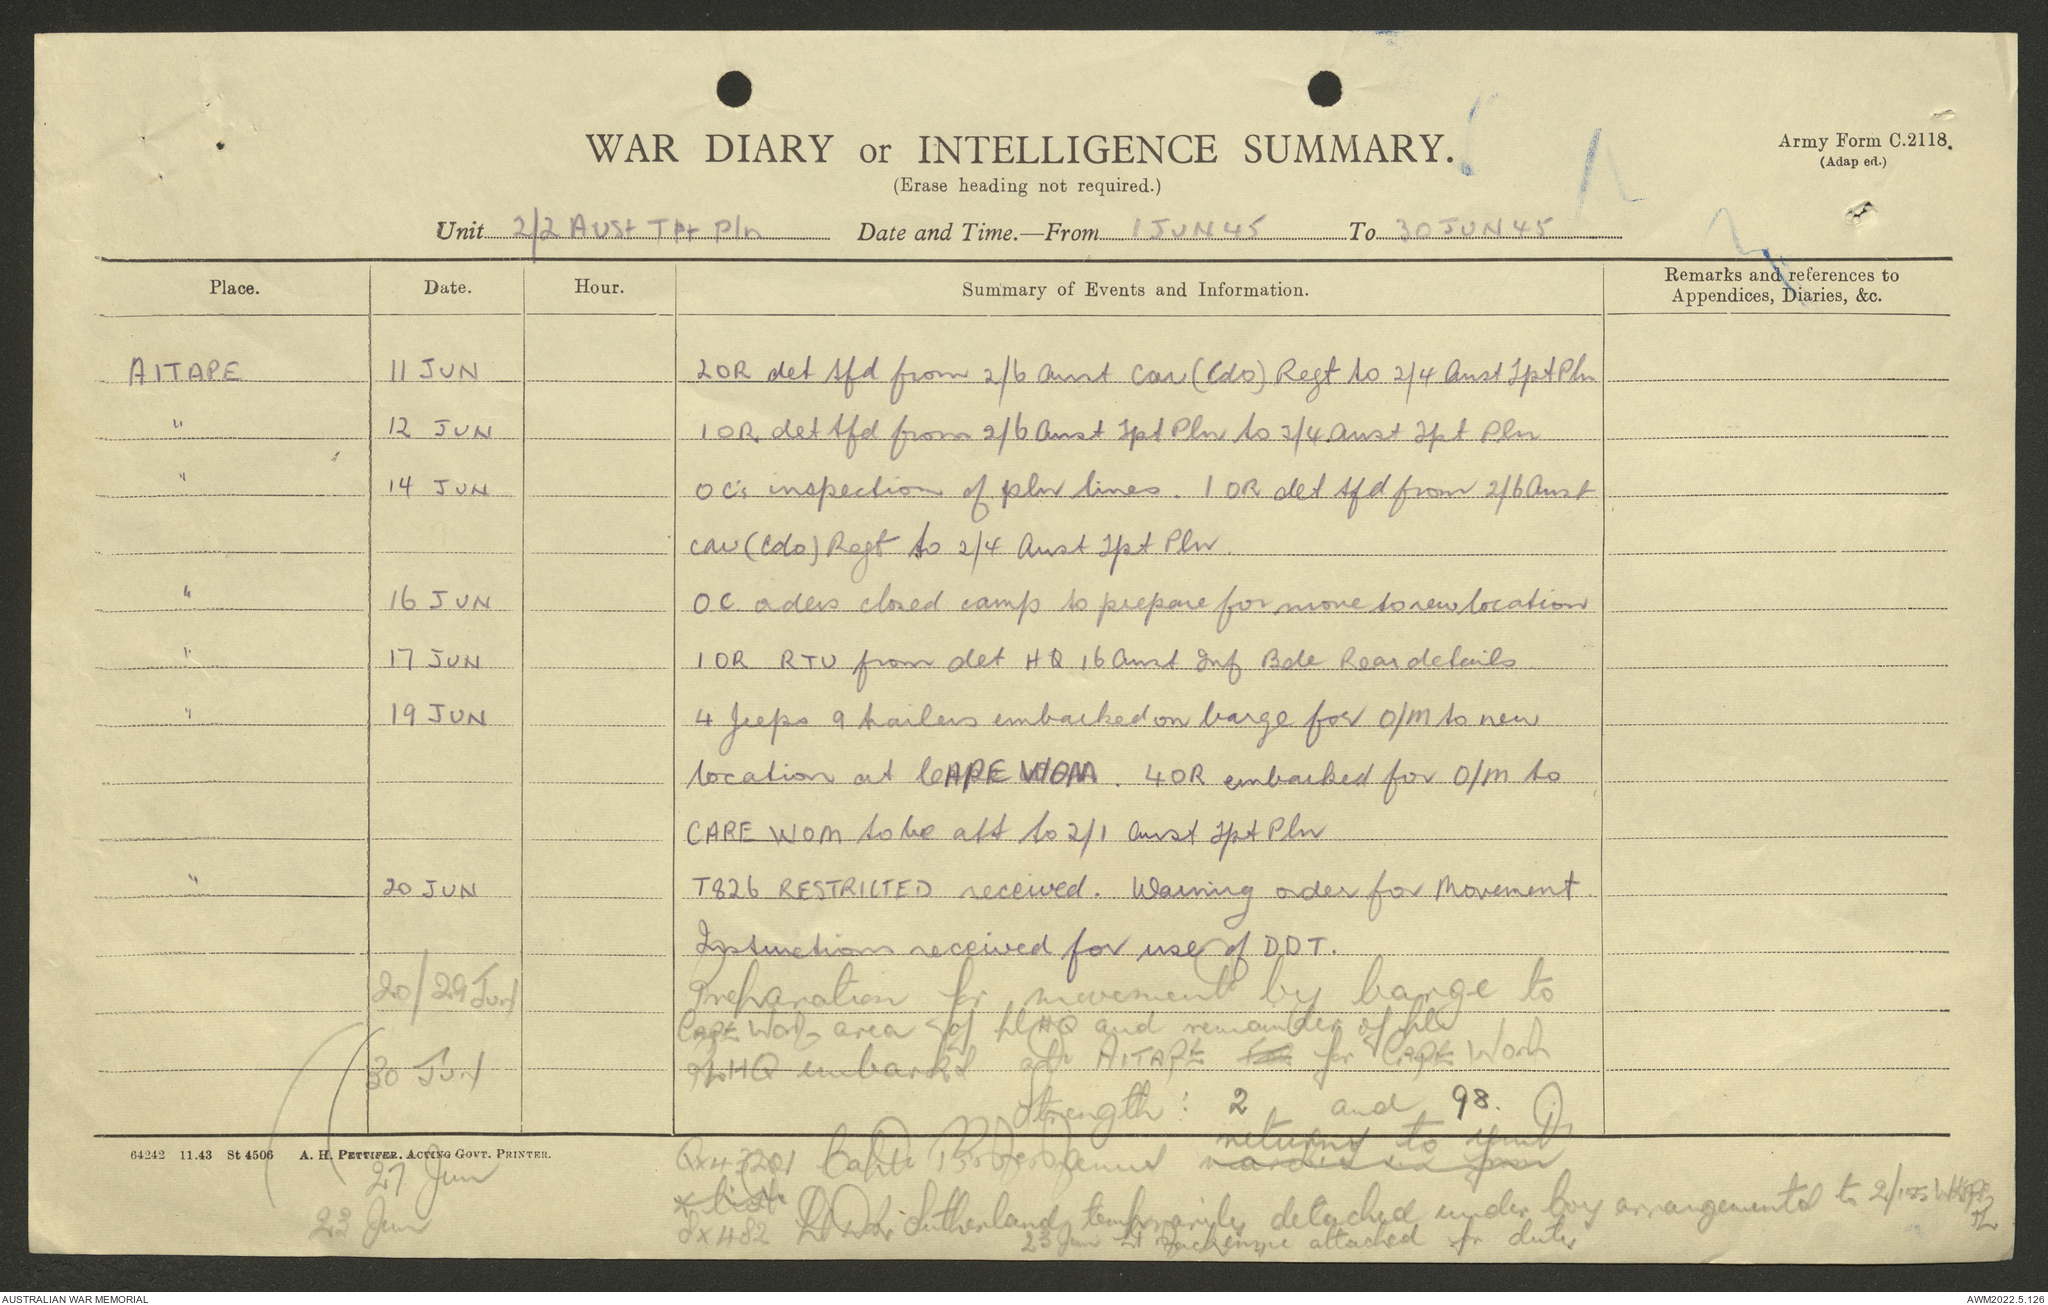 WAR DIARY or INTELLIGENCE SUMMARY.
(Erase heading not required.)
Army Form C.2118.
(Adap ed.)
Unit 2/2 Aust Tpt Pln Date and Time.—From 1 JUN 45 To 30 JUN 45
Place. Date. Hour. Summary of Events and Information. Remarks and references to Appendices, Diaries, &c.
AITAPE 11 JUN 2 OR det tfd from 2/6 Aust Cav (Cdo) Regt to 2/4 Aust Tpt Pln
" 12 JUN 1 OR det tfd from 2/6 Aust Tpt Pln to 2/4 Aust Tpt Pln
" 14 JUN OC's inspection of pln lines. 1 OR det tfd from 2/6 Aust
Cav (Cdo) Regt to 2/4 Aust Tpt Pln.
" 16 JUN OC orders closed camp to prepare for move to new location
" 17 JUN 1 OR RTU from det HQ 16 Aust Inf Bde Rear details
" 19 JUN 4 Jeeps 9 trailers embarked on barge for O/M to new
location at CAPE WOM. 4 OR embarked for O/M to
CAPE WOM to be att to 2/1 Aust Tpt Pln
" 20 JUN T826 RESTRICTED received. Warning order for Movement
Instructions received for use of DDT.
20/29 Jun Preparation for movement by barge to
CAPE Wom area of HQ and remainder of
30 Jun HQ embarked at AITAPE for CAPE Wom
Strength: 2 and 98.
64242 11.43 St 4506 A. H. PETTIFER. ACTING GOVT. PRINTER.
27 Jun Capt returned to unit
23 Jun Lt Sutherland temporarily detached under arrangements to
23 Jun Lt Mackenzie attached for duty
AUSTRALIAN WAR MEMORIAL
AWM2022.5.126